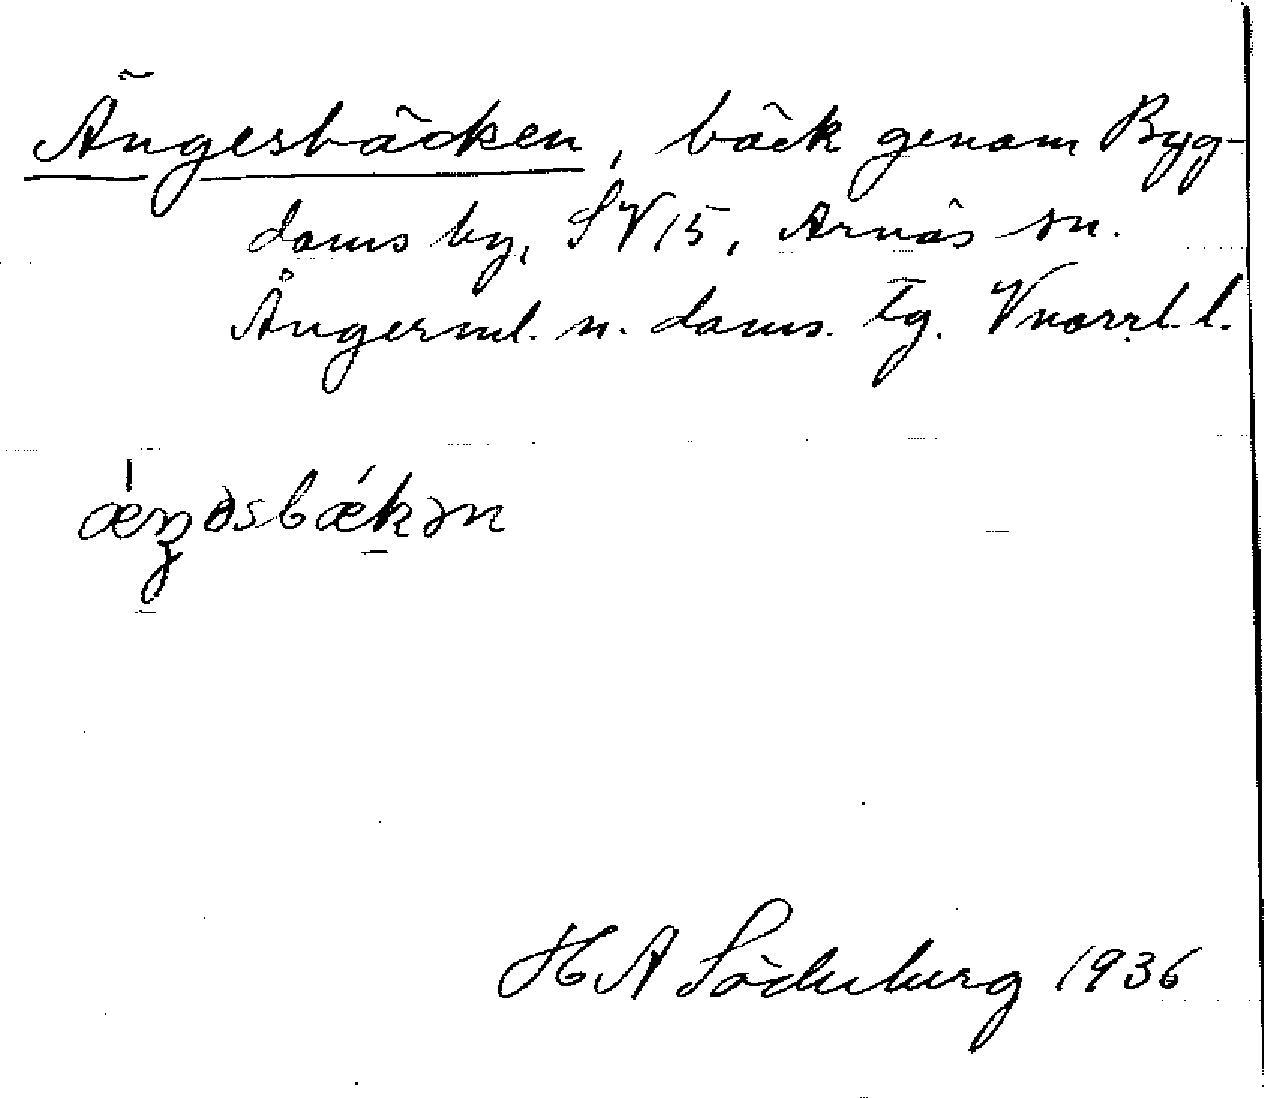 Ängesbäcken, bäck genom Byg-
doms by, SV 15, Arnäs sn.
Ångerml. n. doms. tg. Vnorrl. l.
æŋəsbækən
H A Söderberg 1936